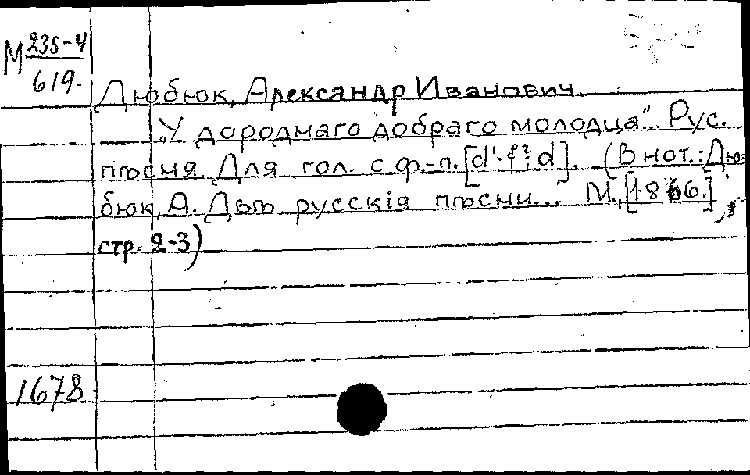 М 235-4
619.
Дюбюк, Александр Иванович.
„У дороднаго добраго молодца". Рус.
пѣсня. Для гол. с ф.-п. [d'-f²; d]. (В нот.: Дю-
бюк, А. Двѣ русскія пѣсни... М., [1866.],
стр. 2-3)
1678